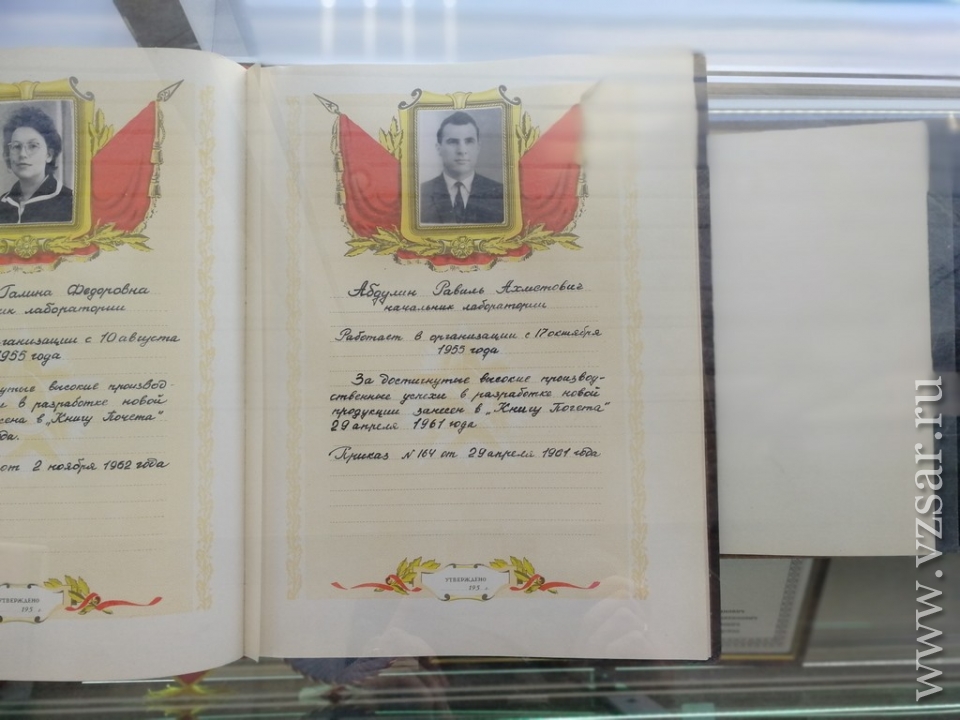 Галина Федоровна
ик лаборатории
ганизации с 10 августа
1955 года
утые высокие производ-
и в разработке новой
сена в „Книгу Почета"
да.
от 2 ноября 1962 года
УТВЕРЖДЕНО
195 г.
Абдулин Равиль Ахметович
начальник лаборатории
Работает в организации с 17 октября
1955 года
За достигнутые высокие производ-
ственные успехи в разработке новой
продукции занесен в „Книгу Почета"
29 апреля 1961 года
Приказ N 164 от 29 апреля 1961 года
УТВЕРЖДЕНО
195 г.
www.vzsar.ru